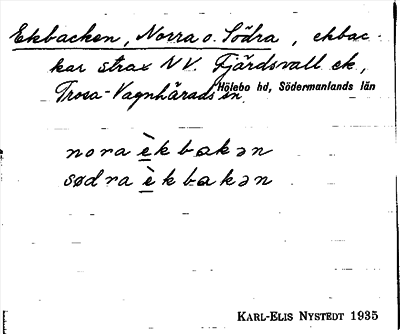 Ekbacken, Norra o. Södra, ekbac-
kar strax NV Fjärdsvall ek,
Trosa-Vagnhärads sn. Hölebo hd, Södermanlands län
nora è̲kbakən
sødra è̲kbakən
KARL-ELIS NYSTEDT 1935